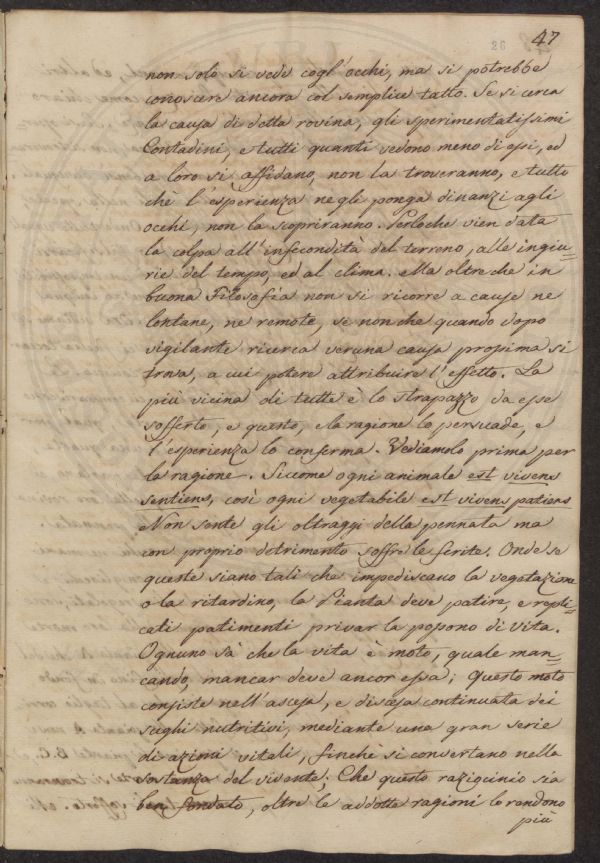 26 47
non solo si vede cogl' occhi, ma si potrebbe
conoscere ancora col semplice tatto. Se si cerca
la causa di detta rovina, gli sperimentatissimi
Contadini, e tutti quanti vedono meno di essi, ed
a loro si affidano, non la troveranno, e tutto
chè l'esperienza negli ponga dinanzi agli
occhi, non la scopriranno. Perloche vien data
la colpa all'infecondità del terreno, alle ingiu=
rie del tempo, ed al clima. Ma oltre che in
buona Filosofia non si ricorre a cause ne
lontane, ne remote, se non che quando dopo
vigilante ricerca veruna causa prossima si
trova, a cui potere attribuire l'effetto. La
più vicina di tutte è lo strapazzo da esse
sofferto, e questo, e la ragione lo persuade, e
l'esperienza lo conferma. Vediamolo prima per
la ragione. Siccome ogni animale est vivens
sentiens, così ogni vegetabile est vivens patiens
Non sente gli oltraggi della pennata ma
con proprio detrimento soffre le ferite. Onde se
queste siano tali che impediscano la vegetazione
o la ritardino, la Pianta deve patire, e repli=
cati patimenti privar la possono di vita.
Ognuno sà che la vita è moto, quale man=
cando, mancar deve ancor essa; Questo moto
consiste nell'ascesa, e discesa continuata dei
sughi nutritivi, mediante una gran serie
di azimi vitali, finchè si convertano nella
sostanza del vivente; Che questo raziocinio sia
ben fondato, oltre le addotte ragioni lo rendono
più